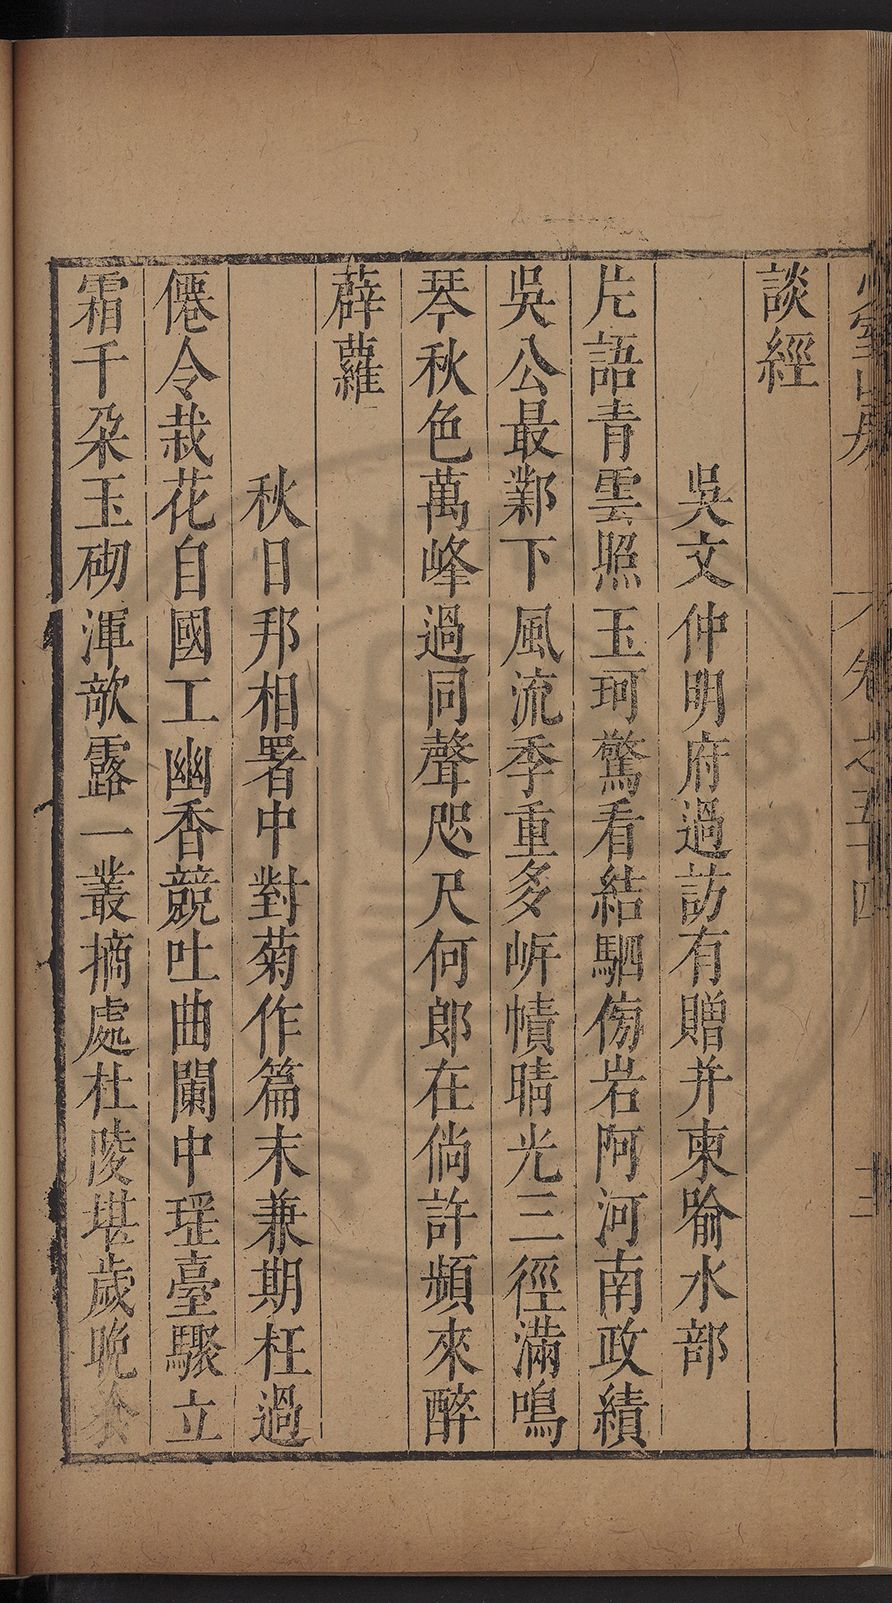 少室山房 卷之五十四
談經
吳文仲明府過訪有贈并柬喻水部
片語青雲照玉珂驚看結駟傍岩阿河南政績
吳公最鄴下風流季重多岸幘晴光三徑滿鳴
琴秋色萬峰過同聲咫尺何郎在倘許頻來醉
薜蘿
秋日邦相署中對菊作篇末兼期枉過
僊令栽花自國工幽香競吐曲闌中瑤臺驟立
霜千朶玉砌渾欹露一叢摘處杜陵堪歲晚